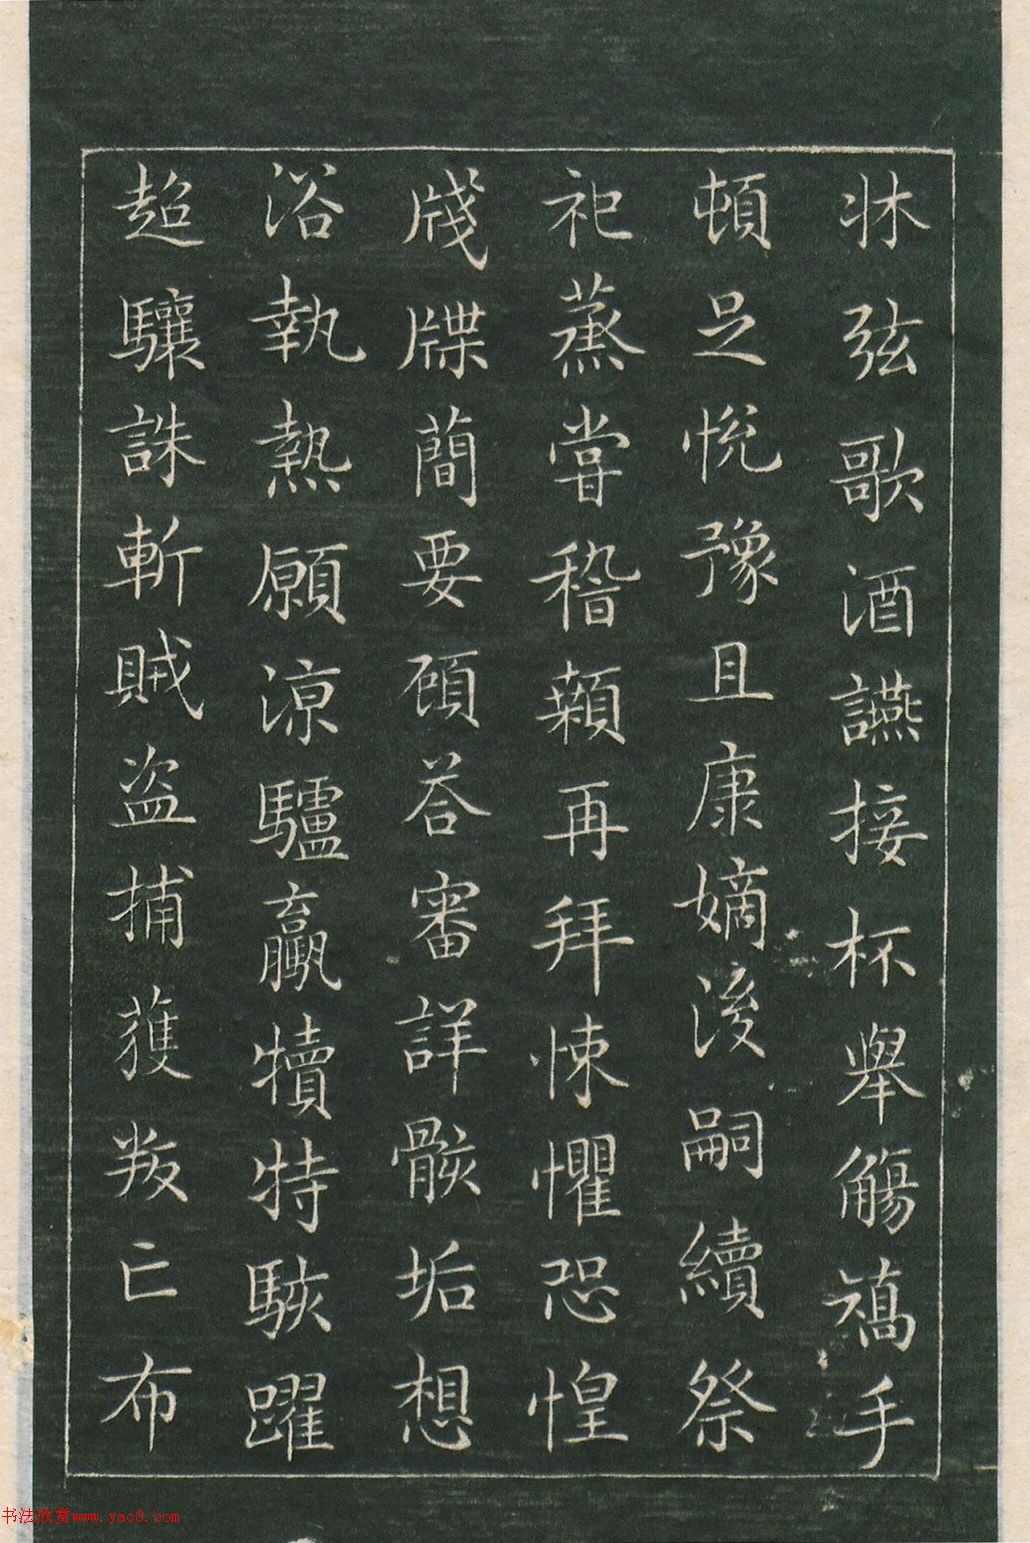 牀弦歌酒讌接杯舉觴矯手
頓足悅豫且康嫡後嗣續祭
祀蒸嘗稽顙再拜悚懼恐惶
牋牒簡要顧答審詳骸垢想
浴執熱願涼驢騾犢特駭躍
超驤誅斬賊盜捕獲叛亡布
书法欣赏www.yac8.com